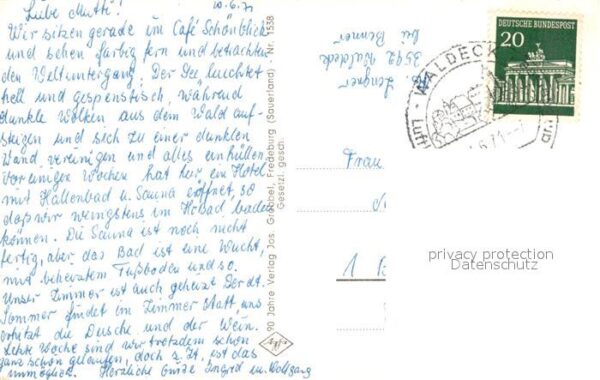 10.6.71
Liebe Mutti!
Wir sitzen gerade im Café Schönblick
und sehen farbig fern und betrachten
den Weltuntergang. Der See leuchtet
hell und gespenstisch, während
dunkle Wolken aus dem Wald auf-
steigen und sich zu einer dunklen
Wand vereinigen und alles einhüllen.
Vor einigen Wochen hat hier ein Hotel
mit Hallenbad u. Sauna eröffnet, so
daß wir wenigstens im baden
können. Die Sauna ist noch nicht
fertig, aber das Bad ist eine Wucht,
mit beheiztem Fußboden und so.
Unser Zimmer ist auch geheizt. Der dt.
Sommer findet im Zimmer statt uns
erhitzt die Dusche und der Wein.
Letzte Woche sind wir trotzdem schon
ganz schön gelaufen, doch z. Zt. ist das
unmöglich. Herzliche Grüße Ingrid u. Wolfgang
90 Jahre Verlag Jos. Grobbel, Fredeburg (Sauerland) - Nr. 1538
Gesetzl. gesch.
3592 Waldeck
bei
DEUTSCHE BUNDESPOST
20
WALDECK
Frau
1
privacy protection
Datenschutz